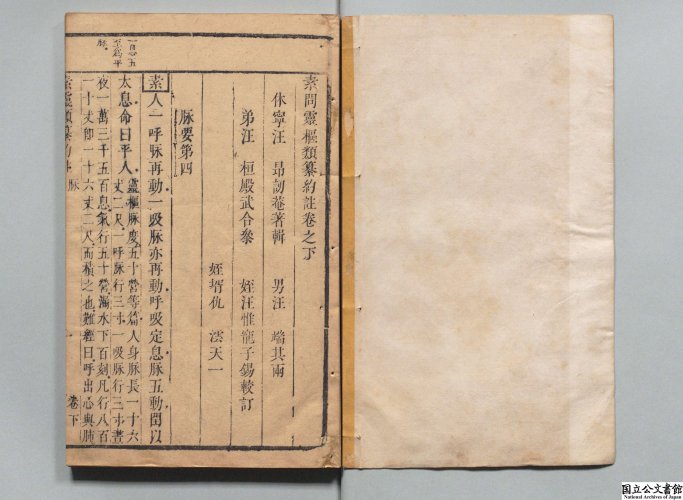 素問靈樞類纂約註卷之下
休寧汪 昂訒菴著輯 男汪 端其兩
弟汪 桓殿武合參 姪汪惟寵子錫較訂
姪壻仇 澐天一
脉要第四
素人一呼脉再動一吸脉亦再動呼吸定息脉五動閏以
太息命曰平人靈樞脉度五十營等篇人身脉長一十六
丈二尺一呼脉行三寸一吸脉行三寸晝
夜一萬三千五百息氣行五十營漏水下百刻凡行八百
一十丈卽一十六丈二尺而積之也難經曰呼出心與肺
一息五
至爲平
脉
素靈類纂約註 脉 一 卷下
国立公文書館
National Archives of Japan